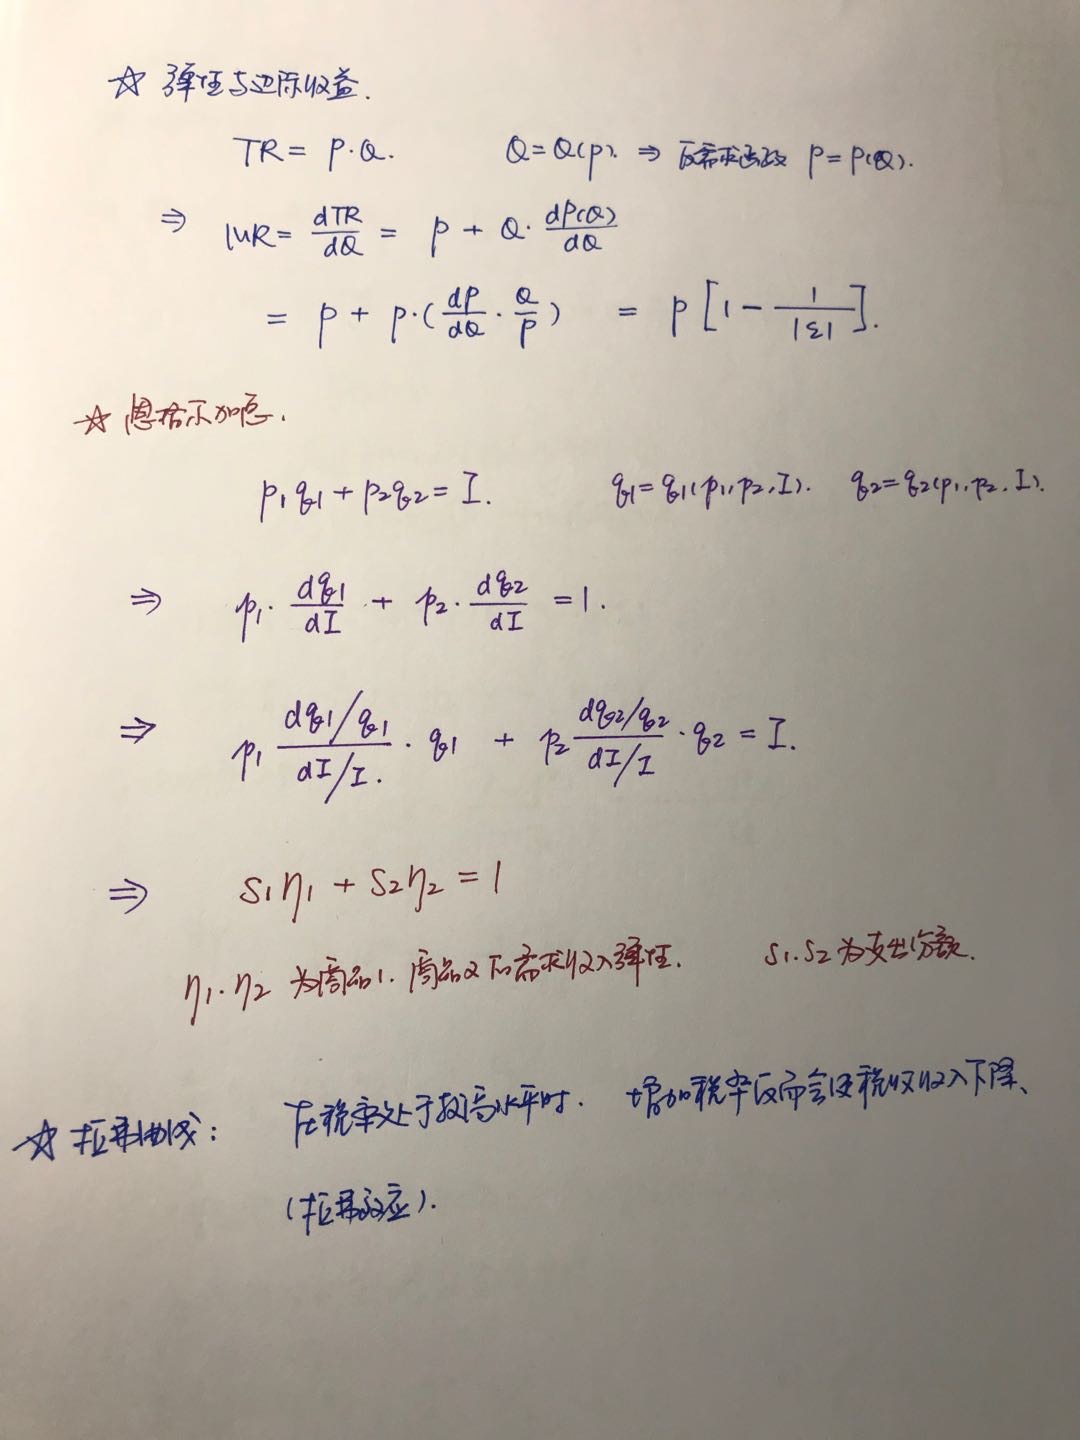 ☆ 弹性与边际收益.
TR = P·Q. Q=Q(p). ⇒ 反需求函数 P=P(Q).
⇒ MR = dTR/dQ = P + Q·dP(Q)/dQ
= P + P·(dP/dQ · Q/P) = P[1 - 1/|ε|].
☆ 恩格尔加总.
p₁q₁ + p₂q₂ = I. q₁=q₁(p₁,p₂,I). q₂=q₂(p₁,p₂,I).
⇒ p₁·dq₁/dI + p₂·dq₂/dI = 1.
⇒ p₁ (dq₁/q₁)/(dI/I)·q₁ + p₂ (dq₂/q₂)/(dI/I)·q₂ = I.
⇒ S₁η₁ + S₂η₂ = 1
η₁.η₂ 为商品1.商品2的需求收入弹性. S₁.S₂为支出份额.
☆ 拉弗曲线: 在税率处于较高水平时. 增加税率反而会使税收收入下降、
(拉弗效应).